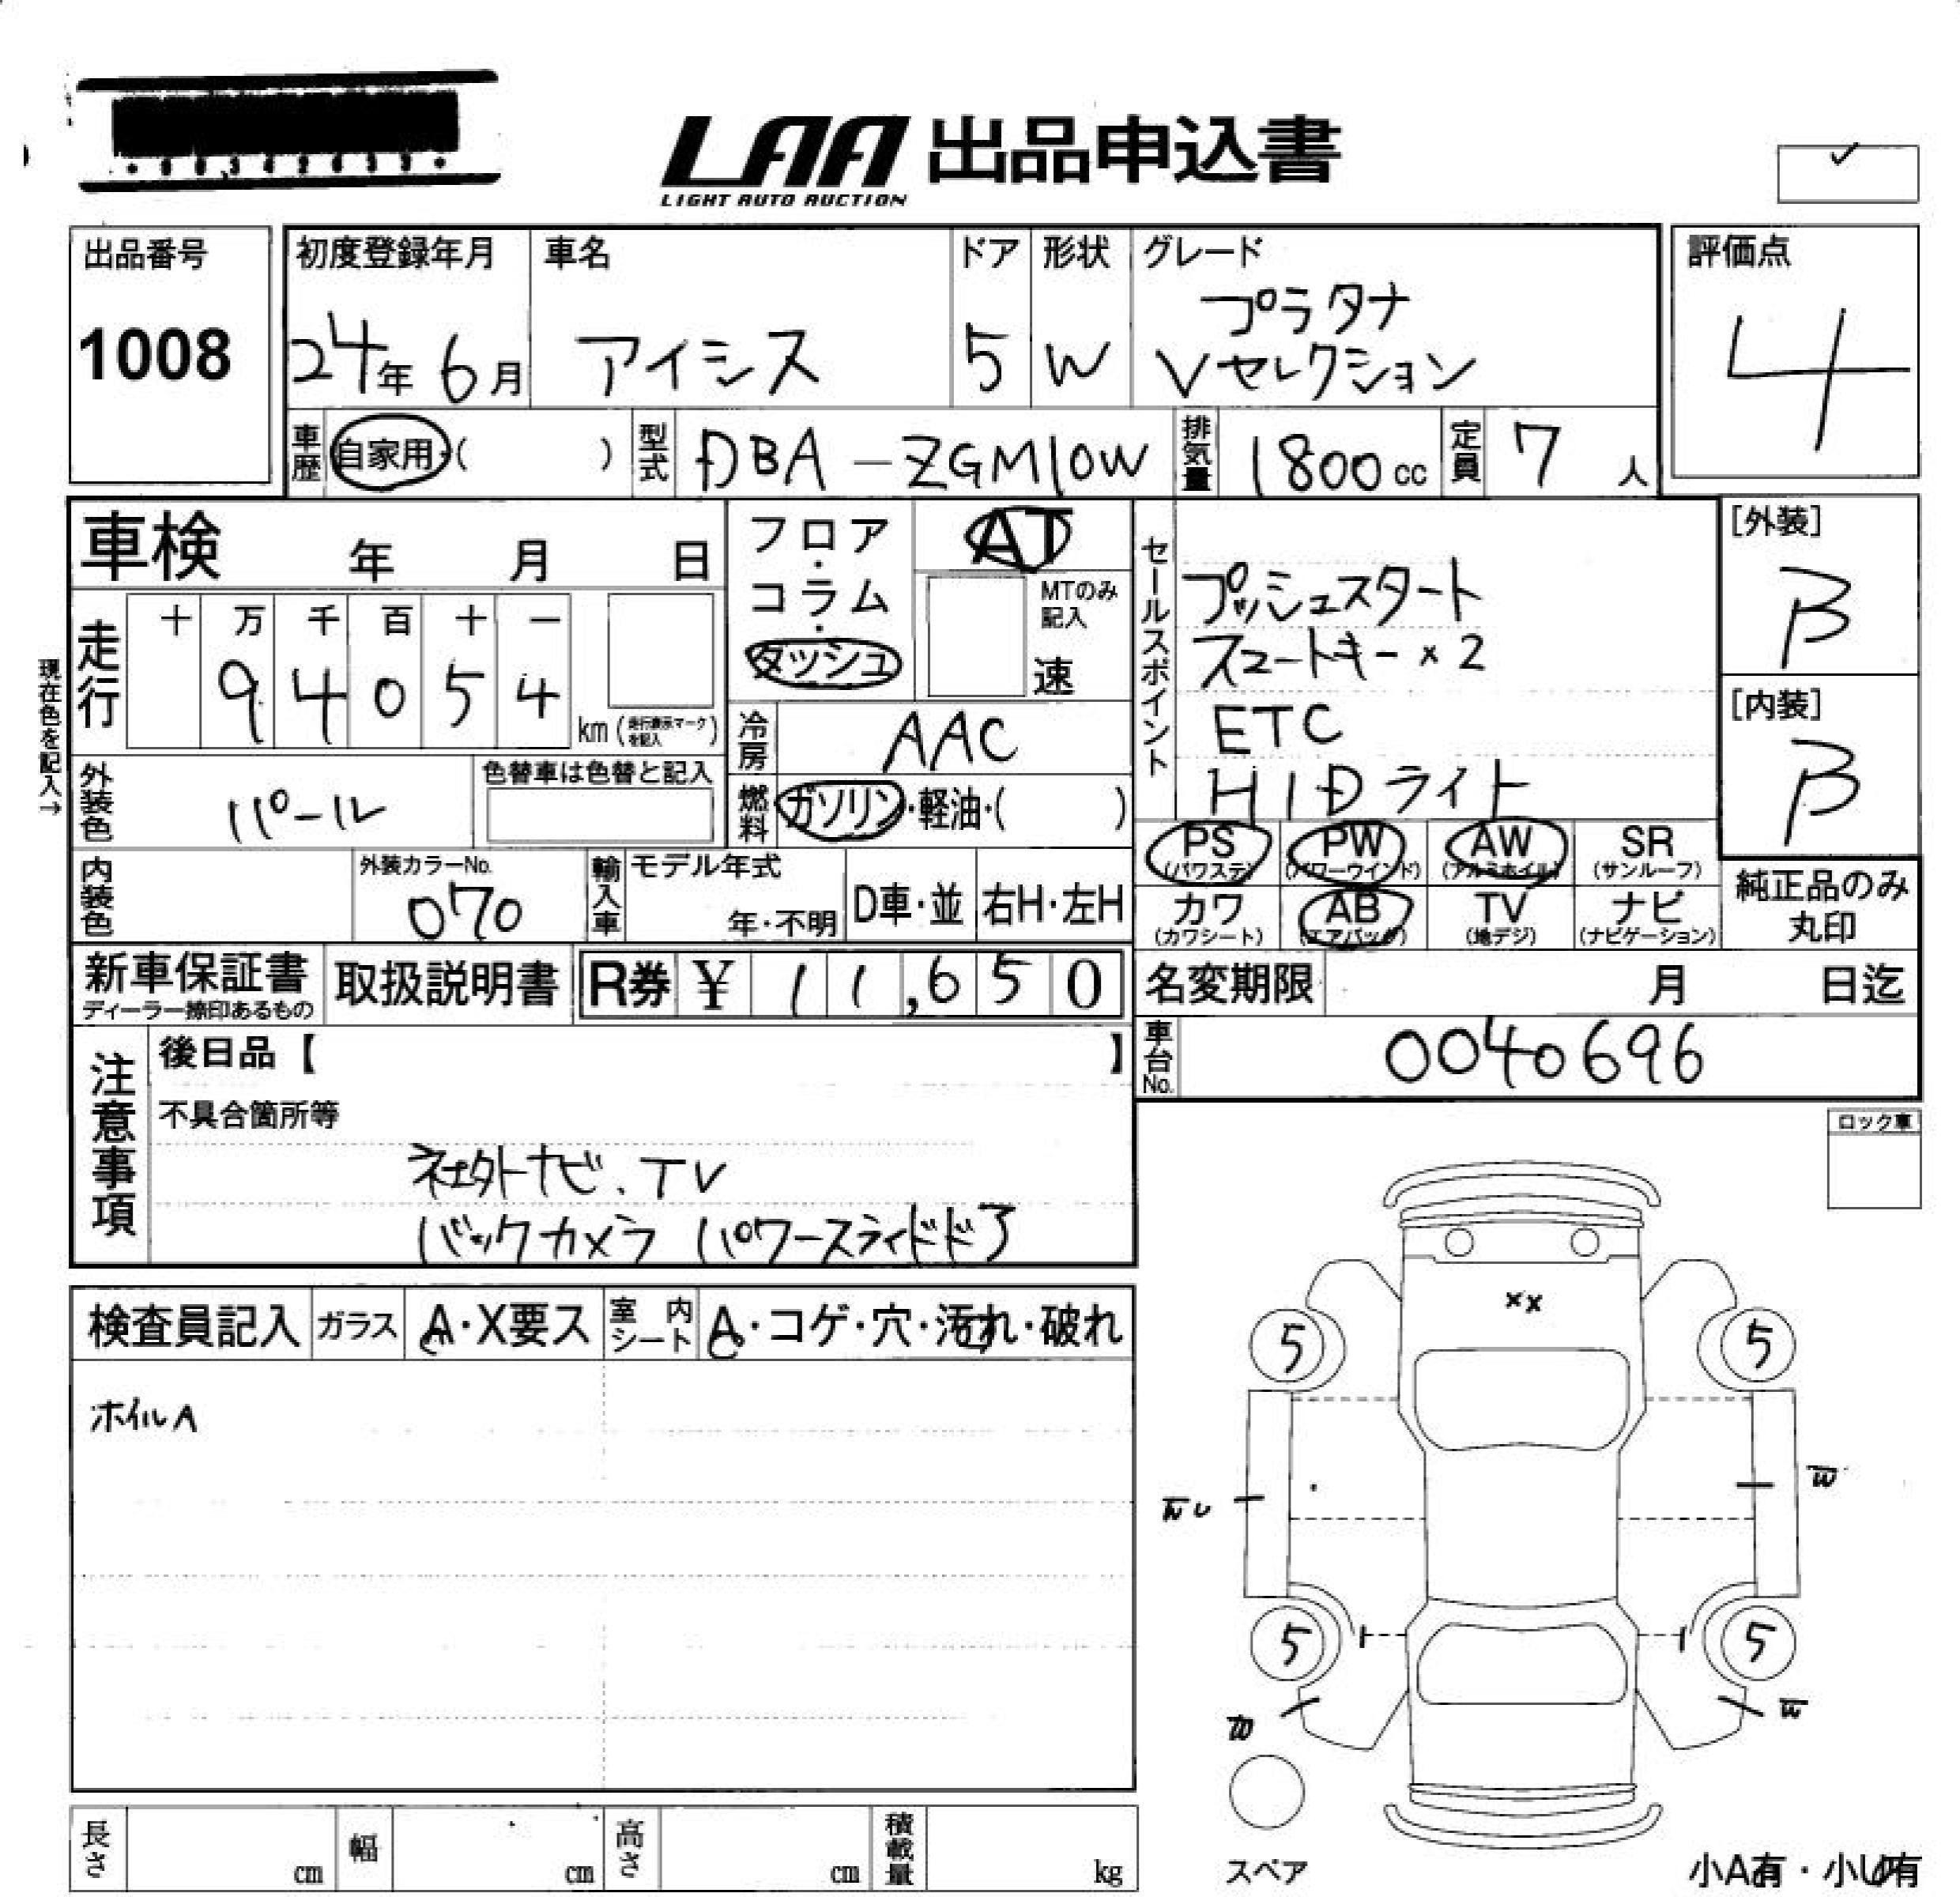 LAA 出品申込書
LIGHT AUTO AUCTION
出品番号
1008
初度登録年月
24年 6月
車名
アイシス
ドア
5
形状
W
グレード
プラタナ
Vセレクション
評価点
4
車歴 自家用・( )
型式 DBA-ZGM10W
排気量 1800 cc
定員 7 人
車検 年 月 日
フロア・コラム・ダッシュ
AT
MTのみ記入
速
走行
十 万 千 百 十 一
9 4 0 5 4
km (走行表示マークを記入)
現在色を記入→
冷房 AAC
外装色 パール
色替車は色替と記入
燃料 ガソリン・軽油・( )
内装色
外装カラーNo.
070
輸入車
モデル年式
年・不明
D車・並
右H・左H
セールスポイント
プッシュスタート
スマートキー×2
ETC
HIDライト
[外装]
B
[内装]
B
PS (パワステ)
PW (パワーウインド)
AW (アルミホイル)
SR (サンルーフ)
カワ (カワシート)
AB (エアバッグ)
TV (地デジ)
ナビ (ナビゲーション)
純正品のみ
丸印
新車保証書
ディーラー捺印あるもの
取扱説明書
R券 ¥ 11,650
名変期限 月 日迄
車台No. 0040696
注意事項
後日品【 】
不具合箇所等
社外ナビ、TV
バックカメラ パワースライドドア
ロック車
検査員記入
ガラス A・X要ス
室内シート A・コゲ・穴・汚れ・破れ
ホイルA
××
5
5
W
5
5
長さ cm
幅 cm
高さ cm
積載量 kg
スペア
小A有・小U有